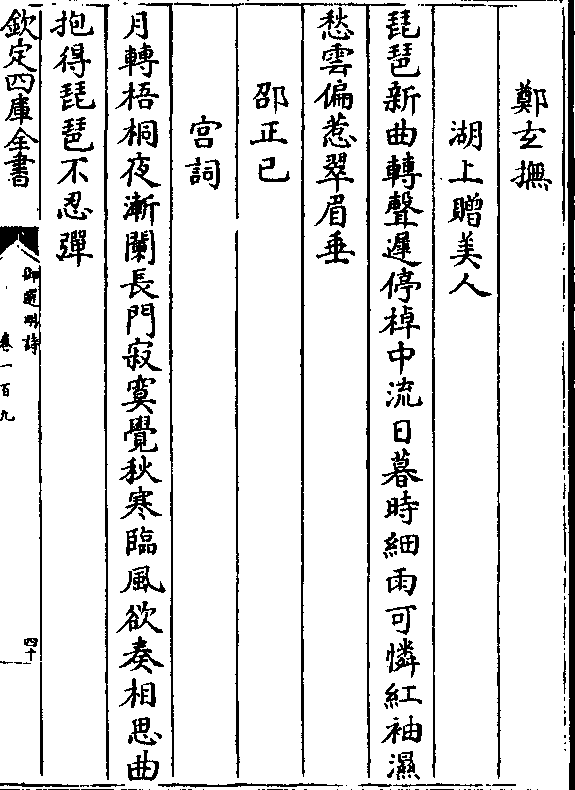 鄭玄撫
湖上贈美人
琵琶新曲轉聲遲停棹中流日暮時細雨可憐紅袖濕
愁雲偏惹翠眉垂
邵正己
宮詞
月轉梧桐夜漸闌長門寂寞覺秋寒臨風欲奏相思曲
抱得琵琶不忍彈
欽定四庫全書
御選明詩
卷一百九
四十